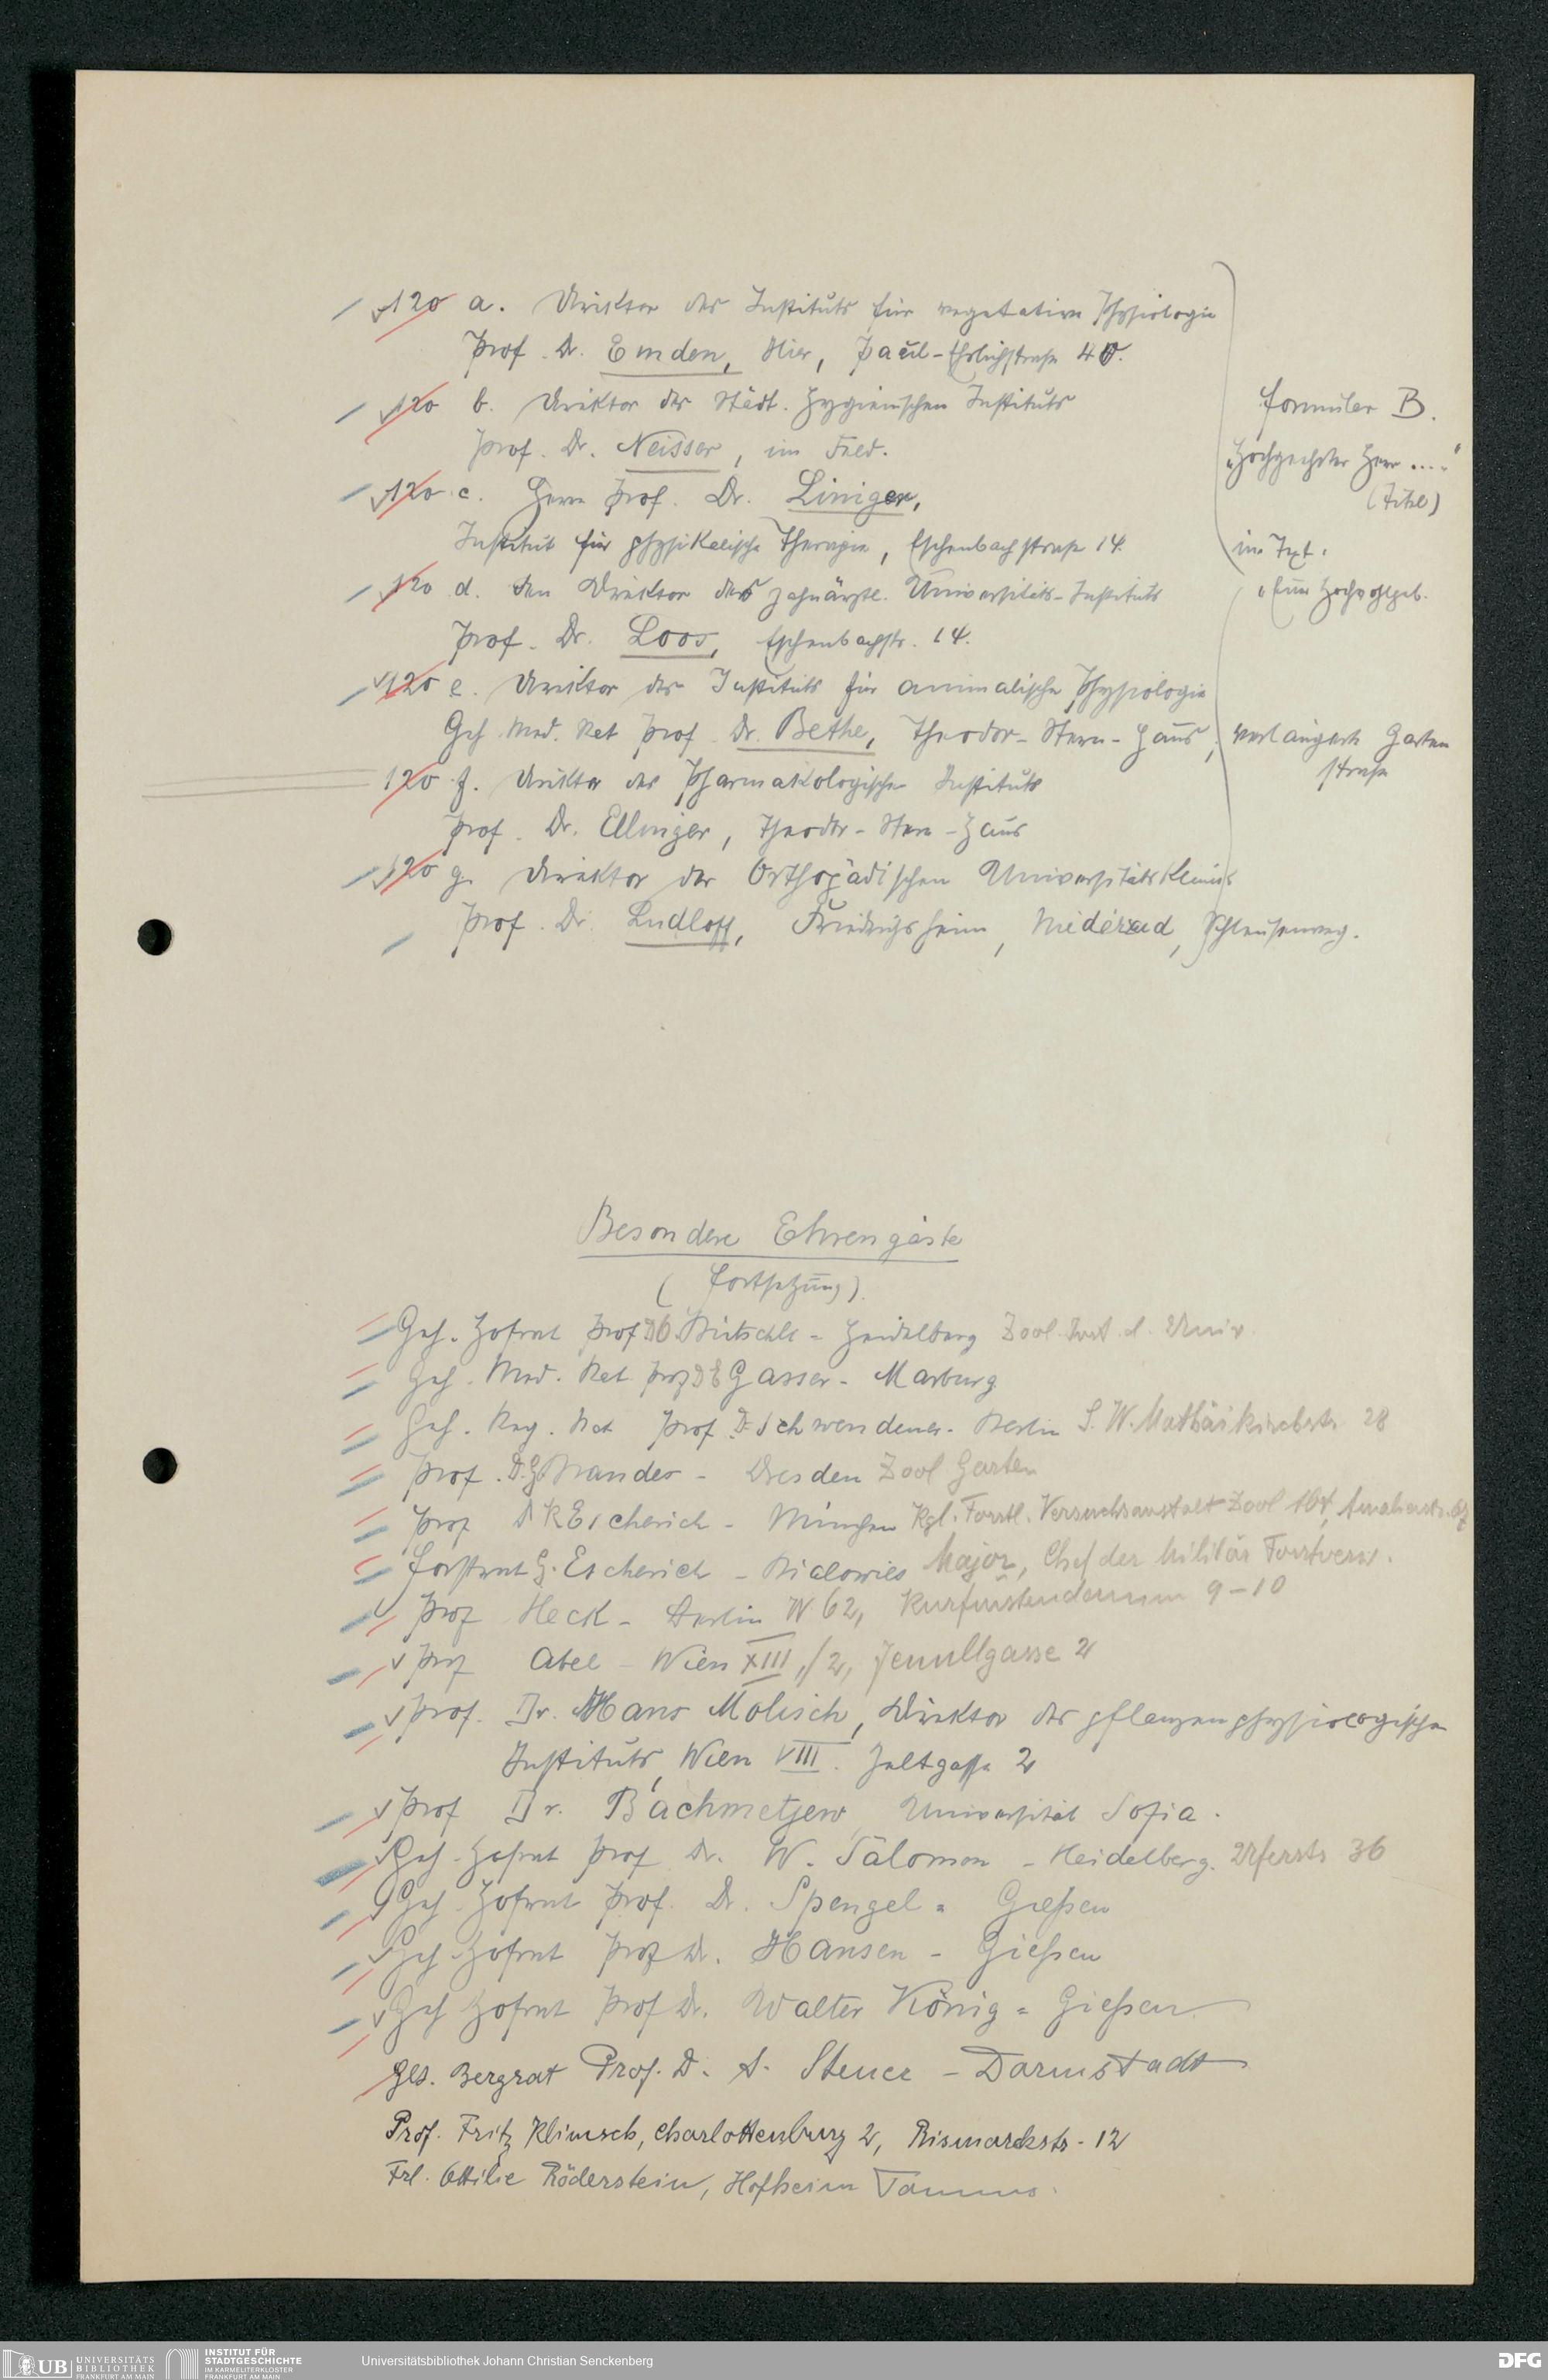 120 a. Direktor des Instituts für vegetative Physiologie
Prof. Dr. Emden, Hier, Paul-Ehrlichstraße 40.
120 b. Direktor des Städt. Hygienischen Instituts
Prof. Dr. Neisser, im Hled.
120 c. Herrn Prof. Dr. Liniger,
Institut für physikalische Therapie, Eschenbachstraße 14.
120 d. den Direktor des zahnärztl. Universitäts-Instituts
Prof. Dr. Loos, Eschenbachstr. 14.
120 e. Direktor des Instituts für animalische Physiologie
Geh. Med. Rat Prof. Dr. Bethe, Theodor-Stern-Haus, verlängerte Garten
straße
120 f. Direktor des Pharmakologischen Instituts
Prof. Dr. Ellinger, Theodor-Stern-Haus
120 g. Direktor der Orthopädischen Universitätsklinik
Prof. Dr. Ludloff, Friedrichsheim, Niederrad, Schleusenweg.
Formular B.
„Hochgeehrter Herr ...."
(Titel)
im Text:
„Euer Hochwohlgeb.
Besondere Ehrengäste
(Fortsetzung).
Geh. Hofrat Prof D O. Bütschli - Heidelberg Zool. Inst. d. Univ.
Geh. Med. Rat Prof D E Gasser - Marburg
Geh. Reg. Rat Prof. D. Schwendener - Berlin S.W. Mathäikirchstr 28
Prof. D. G. Brandes - Dresden Zool Garten
Prof D K Escherich - München Kgl. Forstl. Versuchsanstalt Zool Abt, Amalienstr. 67
Forstrat G. Escherich - Bialowies Major, Chef der Militär Forstverw.
Prof Heck - Berlin W 62, Kurfürstendamm 9-10
Prof Abel - Wien XIII,/2, Jenullgasse 2
Prof. Dr. Hans Molisch, Direktor des pflanzenphysiologischen
Instituts, Wien VIII. Zeltgasse 2
Prof Dr. Bachmetjew, Universität Sofia.
Geh. Hofrat Prof Dr. W. Salomon - Heidelberg. Uferstr 36
Geh Hofrat Prof. Dr. Spengel - Gießen
Geh Hofrat Prof Dr. Hansen - Gießen
Geh Hofrat Prof Dr. Walter König - Gießen
Geh. Bergrat Prof. D. A. Steuer - Darmstadt
Prof. Fritz Klimsch, Charlottenburg 2, Bismarckstr. 12
Frl. Ottilie Röderstein, Hofheim Taunus.
UB UNIVERSITÄTS
BIBLIOTHEK
FRANKFURT AM MAIN
INSTITUT FÜR
STADTGESCHICHTE
IM KARMELITERKLOSTER
FRANKFURT AM MAIN
Universitätsbibliothek Johann Christian Senckenberg
DFG